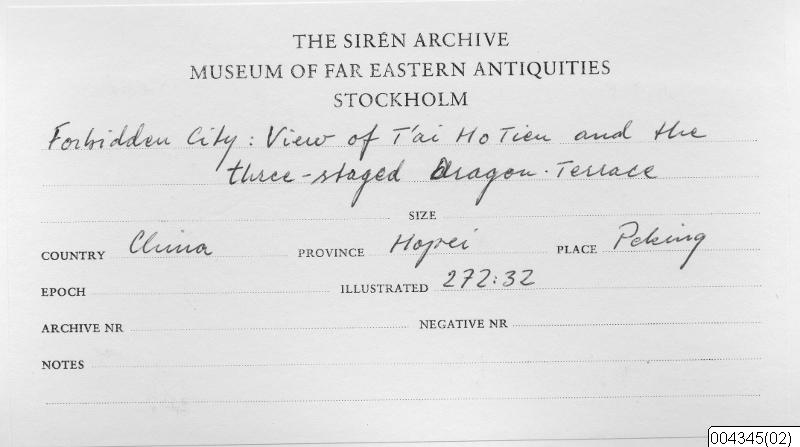 THE SIRÉN ARCHIVE
MUSEUM OF FAR EASTERN ANTIQUITIES
STOCKHOLM
Forbidden City: View of T'ai Ho Tien and the
three-staged Dragon-Terrace
SIZE
COUNTRY China PROVINCE Hopei PLACE Peking
EPOCH ILLUSTRATED 272:32
ARCHIVE NR NEGATIVE NR
NOTES
004345(02)